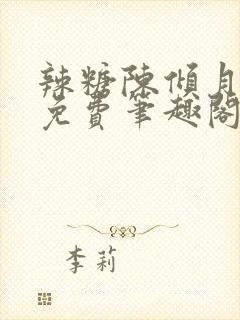 辣糖陈倾月
免费笔趣阁
李莉